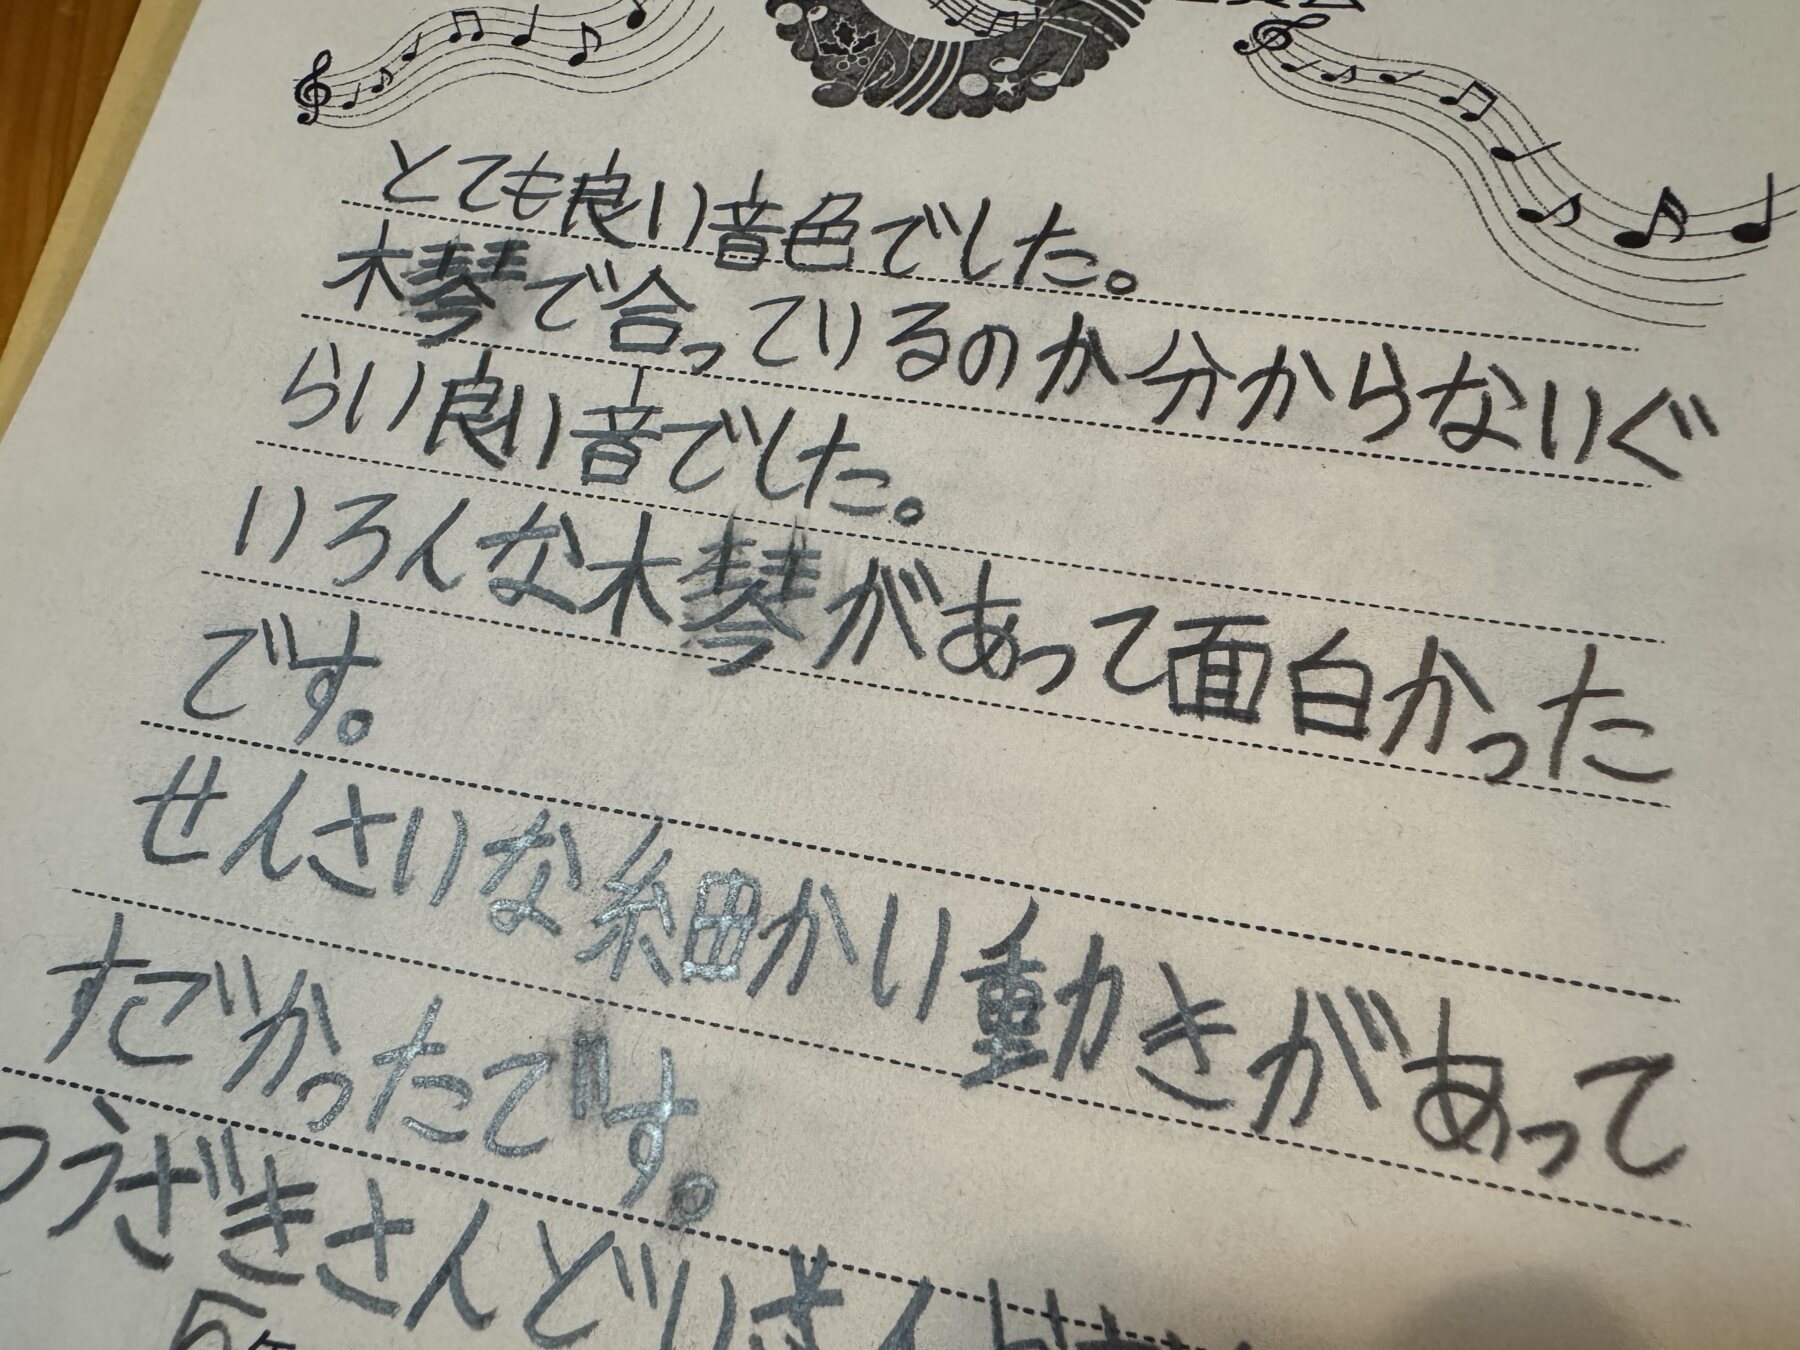 とても良い音色でした。
木琴で合っているのか分からないぐ
らい良い音でした。
いろんな木琴があって面白かった
です。
せんさいな細かい動きがあって
すごかったです。
つうざきさんどいさん
5年